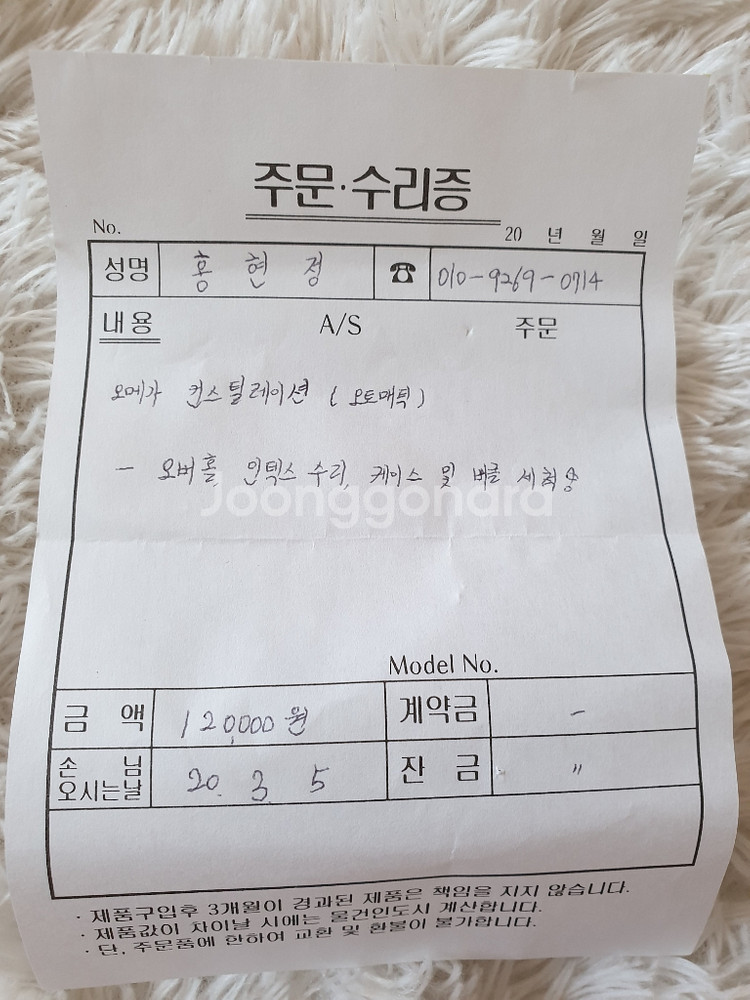 주문·수리증
No. 20 년 월 일
성명 홍 현 정 ☎ 010-9269-0714
내용 A/S 주문
오메가 컨스틸레이션 (오토매틱)
- 오버홀, 인덱스 수리, 케이스 및 버클 세척
Joonggonara
Model No.
금 액 120,000원 계약금 -
손 님 오시는날 20. 3. 5 잔 금 〃
· 제품구입후 3개월이 경과된 제품은 책임을 지지 않습니다.
· 제품값이 차이날 시에는 물건인도시 계산합니다.
· 단, 주문품에 한하여 교환 및 환불이 불가합니다.